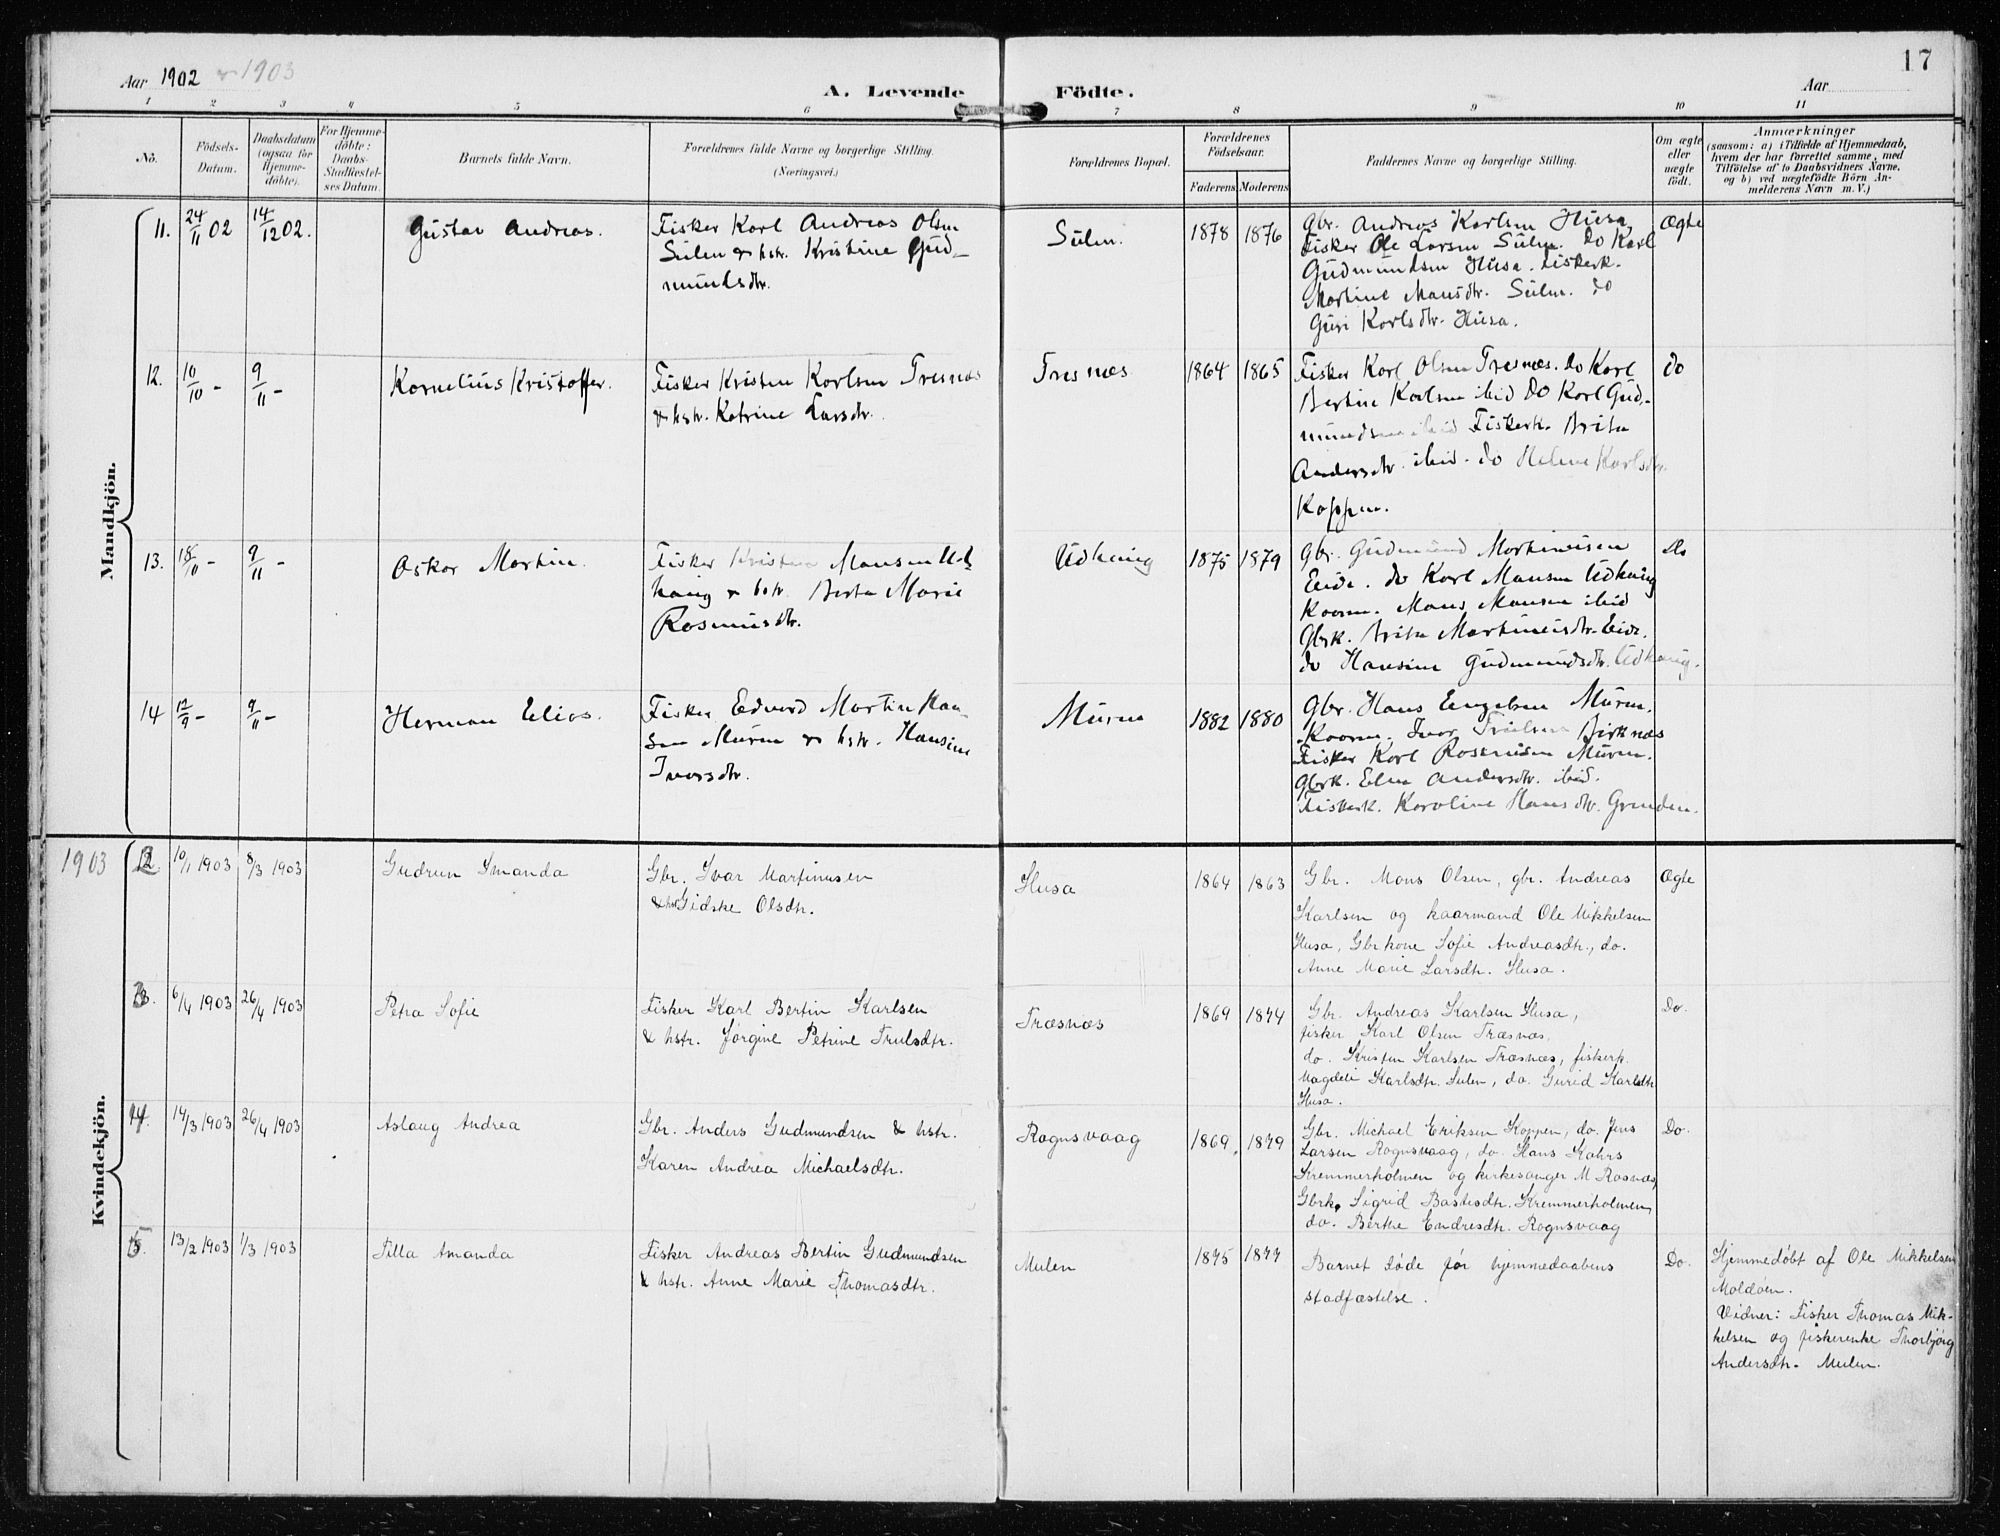 17
Aar 1902 & 1903
A. Levende Födte.
Aar
1 2 3 4 5 6 7 8 9 10 11
No.
Födsels-Datum.
Daabsdatum (ogsaa for Hjemme-döbte).
For Hjemme-döbte: Daabs-Stadfæstel-ses Datum.
Barnets fulde Navn.
Forældrenes fulde Navne og borgerlige Stilling. (Næringsvei.)
Forældrenes Bopæl.
Forældrenes Födselsaar.
Faderens Moderens
Faddernes Navne og borgerlige Stilling.
Om ægte eller uægte födt.
Anmærkninger
(saasom: a) i Tilfælde af Hjemmedaab, hvem der har forrettet samme, med Tilföielse af to Daabsvidners Navne, og b) ved uægtefödte Börn An-melderens Navn m. V.)
Mandkjön.
11. 24/11 02 14/12 02. Gustav Andreas.
Fisker Karl Andreas Olsen
Sulen & hstr. Kristine Gud-
mundsdtr.
Sulen. 1878 1876
Gbr. Andreas Karlsen Husa,
Fisker Ole Larsen Sulen. do Karl
Gudmundsen Husa. Fiskerk.
Martine Monsdtr. Sulen. do
Guri Karlsdtr. Husa.
Ægte
12. 10/10 - 9/11 - Kornelius Kristoffer.
Fisker Kristen Karlsen Tresnæs
& hstr. Katrine Larsdtr.
Tresnæs 1864 1865
Fisker Karl Olsen Tresnæs. do Karl
Bertin Karlsen ibid do Karl Gud-
mundsen ibid Fiskerk. Brita
Andersdtr. ibid. do Helene Karlsdtr.
Koppen.
do
13. 18/10 - 9/11 - Oskar Martin.
Fisker Kristen Monsen Ud-
haug & hstr. Berta Marie
Rasmusdtr.
Udhaug 1875 1879
Gbr. Gudmund Martinusen
Eide. do Karl Monsen Udhaug
Kaarm. Mons Monsen ibid
Gbrk. Brita Martinusdtr. Eide.
do Hansine Gudmundsdtr. Udhaug.
Do
14 12/9 - 9/11 - Herman Elias.
Fisker Edvard Martin Han-
sen Muren & hstr. Hansine
Ivarsdtr.
Muren 1882 1880
Gbr. Hans Engelsen Muren.
Kaarm. Ivar Birknæs
Fisker Karl Rasmusen Muren.
Gbrk. Elen Andersdtr. ibid.
Fiskerk. Karoline Hansdtr. Grenden.
1903
Kvindekjön.
2. 10/1 1903 8/3 1903 Gudrun Amanda
Gbr. Ivar Martinusen
& hstr Gidske Olsdtr.
Husa 1864 1863
Gbr. Mons Olsen, gbr. Andreas
Karlsen og kaarmand Ole Mikkelsen
Husa, Gbrkone Sofie Andreasdtr., do.
Anne Marie Larsdtr. Husa.
Ægte
3. 6/4 1903 26/4 1903 Petra Sofie
Fisker Karl Bertin Karlsen
& hstr. Jørgine Petrine Trulsdtr.
Træsnæs 1869 1874
Gbr. Andreas Karlsen Husa,
fisker Karl Olsen Træsnæs,
do. Kristen Karlsen Træsnæs, fiskerk.
Magdeli Karlsdtr. Sulen, do. Gurid Karlsdtr
Husa.
Do.
4. 14/3 1903 26/4 1903 Aslaug Andrea
Gbr. Anders Gudmundsen & hstr.
Karen Andrea Michaelsdtr.
Rognsvaag 1869. 1879
Gbr. Michael Eriksen Koppen, do. Jens
Larsen Rognsvaag, do. Hans Kahrs
Kremmerholmen og kirkesanger M Rosnæs,
Gbrk. Sigrid Bastesdtr. Kremmerholmen,
do. Berthe Endresdtr. Rognsvaag
Do.
5. 13/2 1903 1/3 1903 Tilla Amanda
Fisker Andreas Bertin Gudmundsen
& hstr. Anne Marie Thomasdtr.
Mulen 1875 1877
Barnet døde før hjemmedaabens
stadfæstelse.
Do.
Hjemmedøbt af Ole Mikkelsen
Moldøen.
Vidner: Fisker Thomas Mik-
kelsen og fiskerenke Thorbjørg
Andersdtr. Mulen.